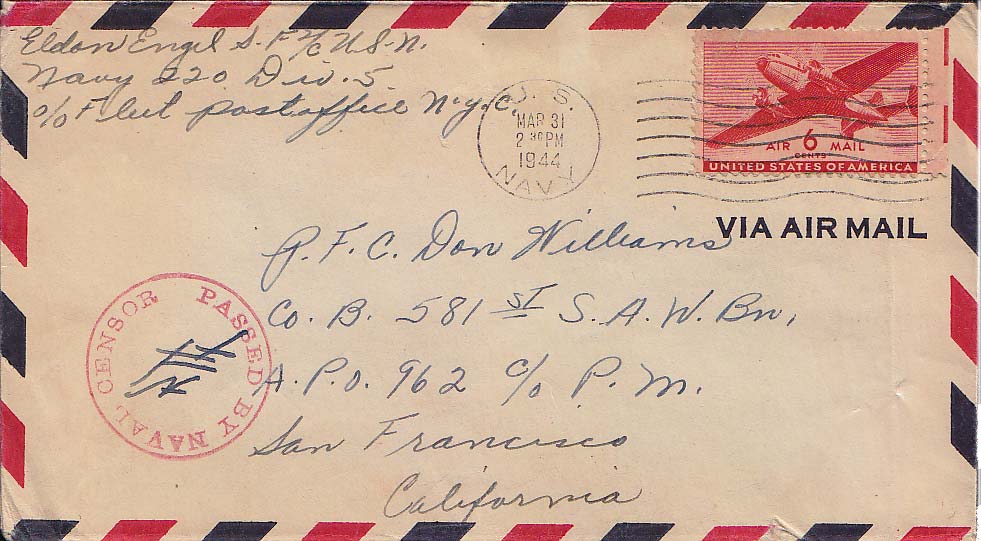 Eldon Engel S.F. 2/c U.S.N.
Navy 220 Div. 5
c/o Fleet postoffice N.Y.C.
U.S.
MAR 31
2 30 PM
1944
NAVY
AIR 6 MAIL
CENTS
UNITED STATES OF AMERICA
VIA AIR MAIL
P.F.C. Don Williams
Co. B. 581 ST S.A.W. Bn,
A.P.O. 962 c/o P.M.
San Francisco
California
PASSED BY NAVAL CENSOR